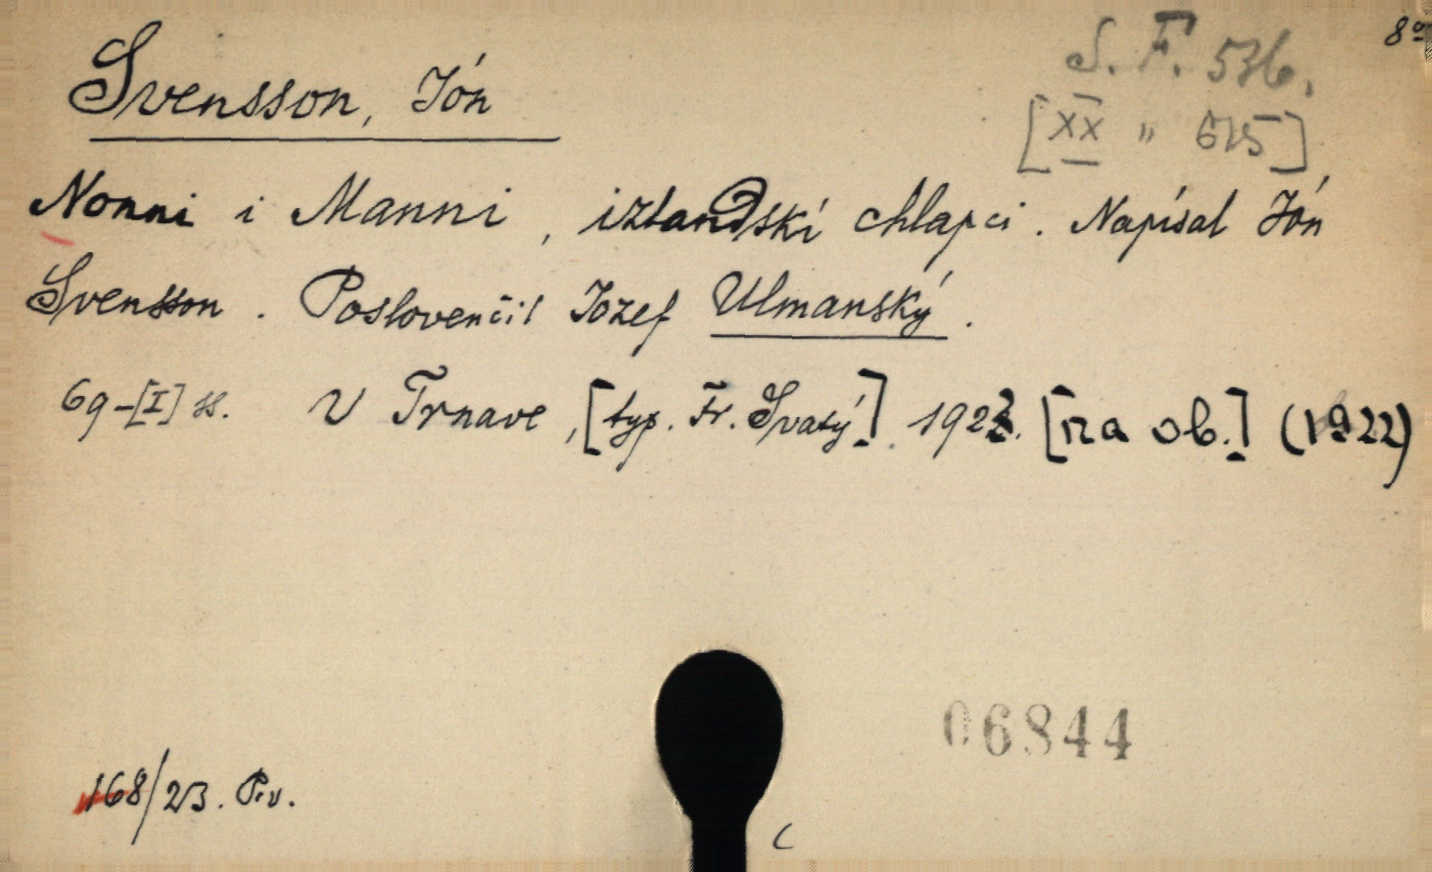 8º
S. F. 536.
Svensson, Jón
[XX " 615]
Nonni i Manni, izlandskí chlapci. Napísal Jón
Svensson. Poslovenčil Jozef Ulmanský.
69-[I] ss. V Trnave, [typ. Fr. Svatý]. 1922. [na ob.] (1922)
06844
168/23. Pr.v.
C